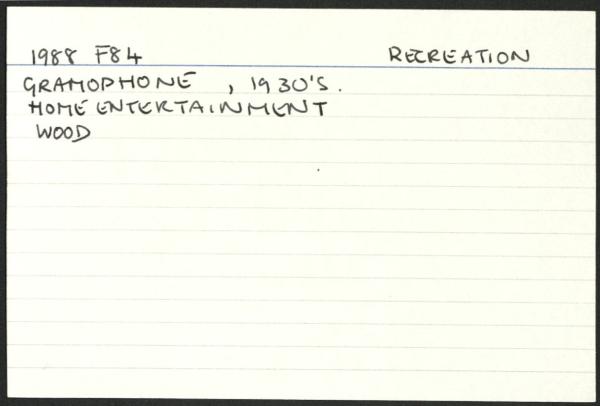 1988 F84 RECREATION
GRAMOPHONE , 1930'S.
HOME ENTERTAINMENT
WOOD